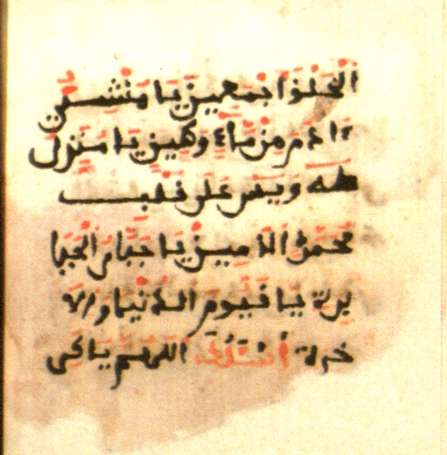 الخلق اجمعين يا منشئ
ءادم من ماء وطين يا منزل
طه ويس على قلب
محمد الامين يا جبار الجبا
برة يا قيوم الدنيا والا
خرة اللهم يا